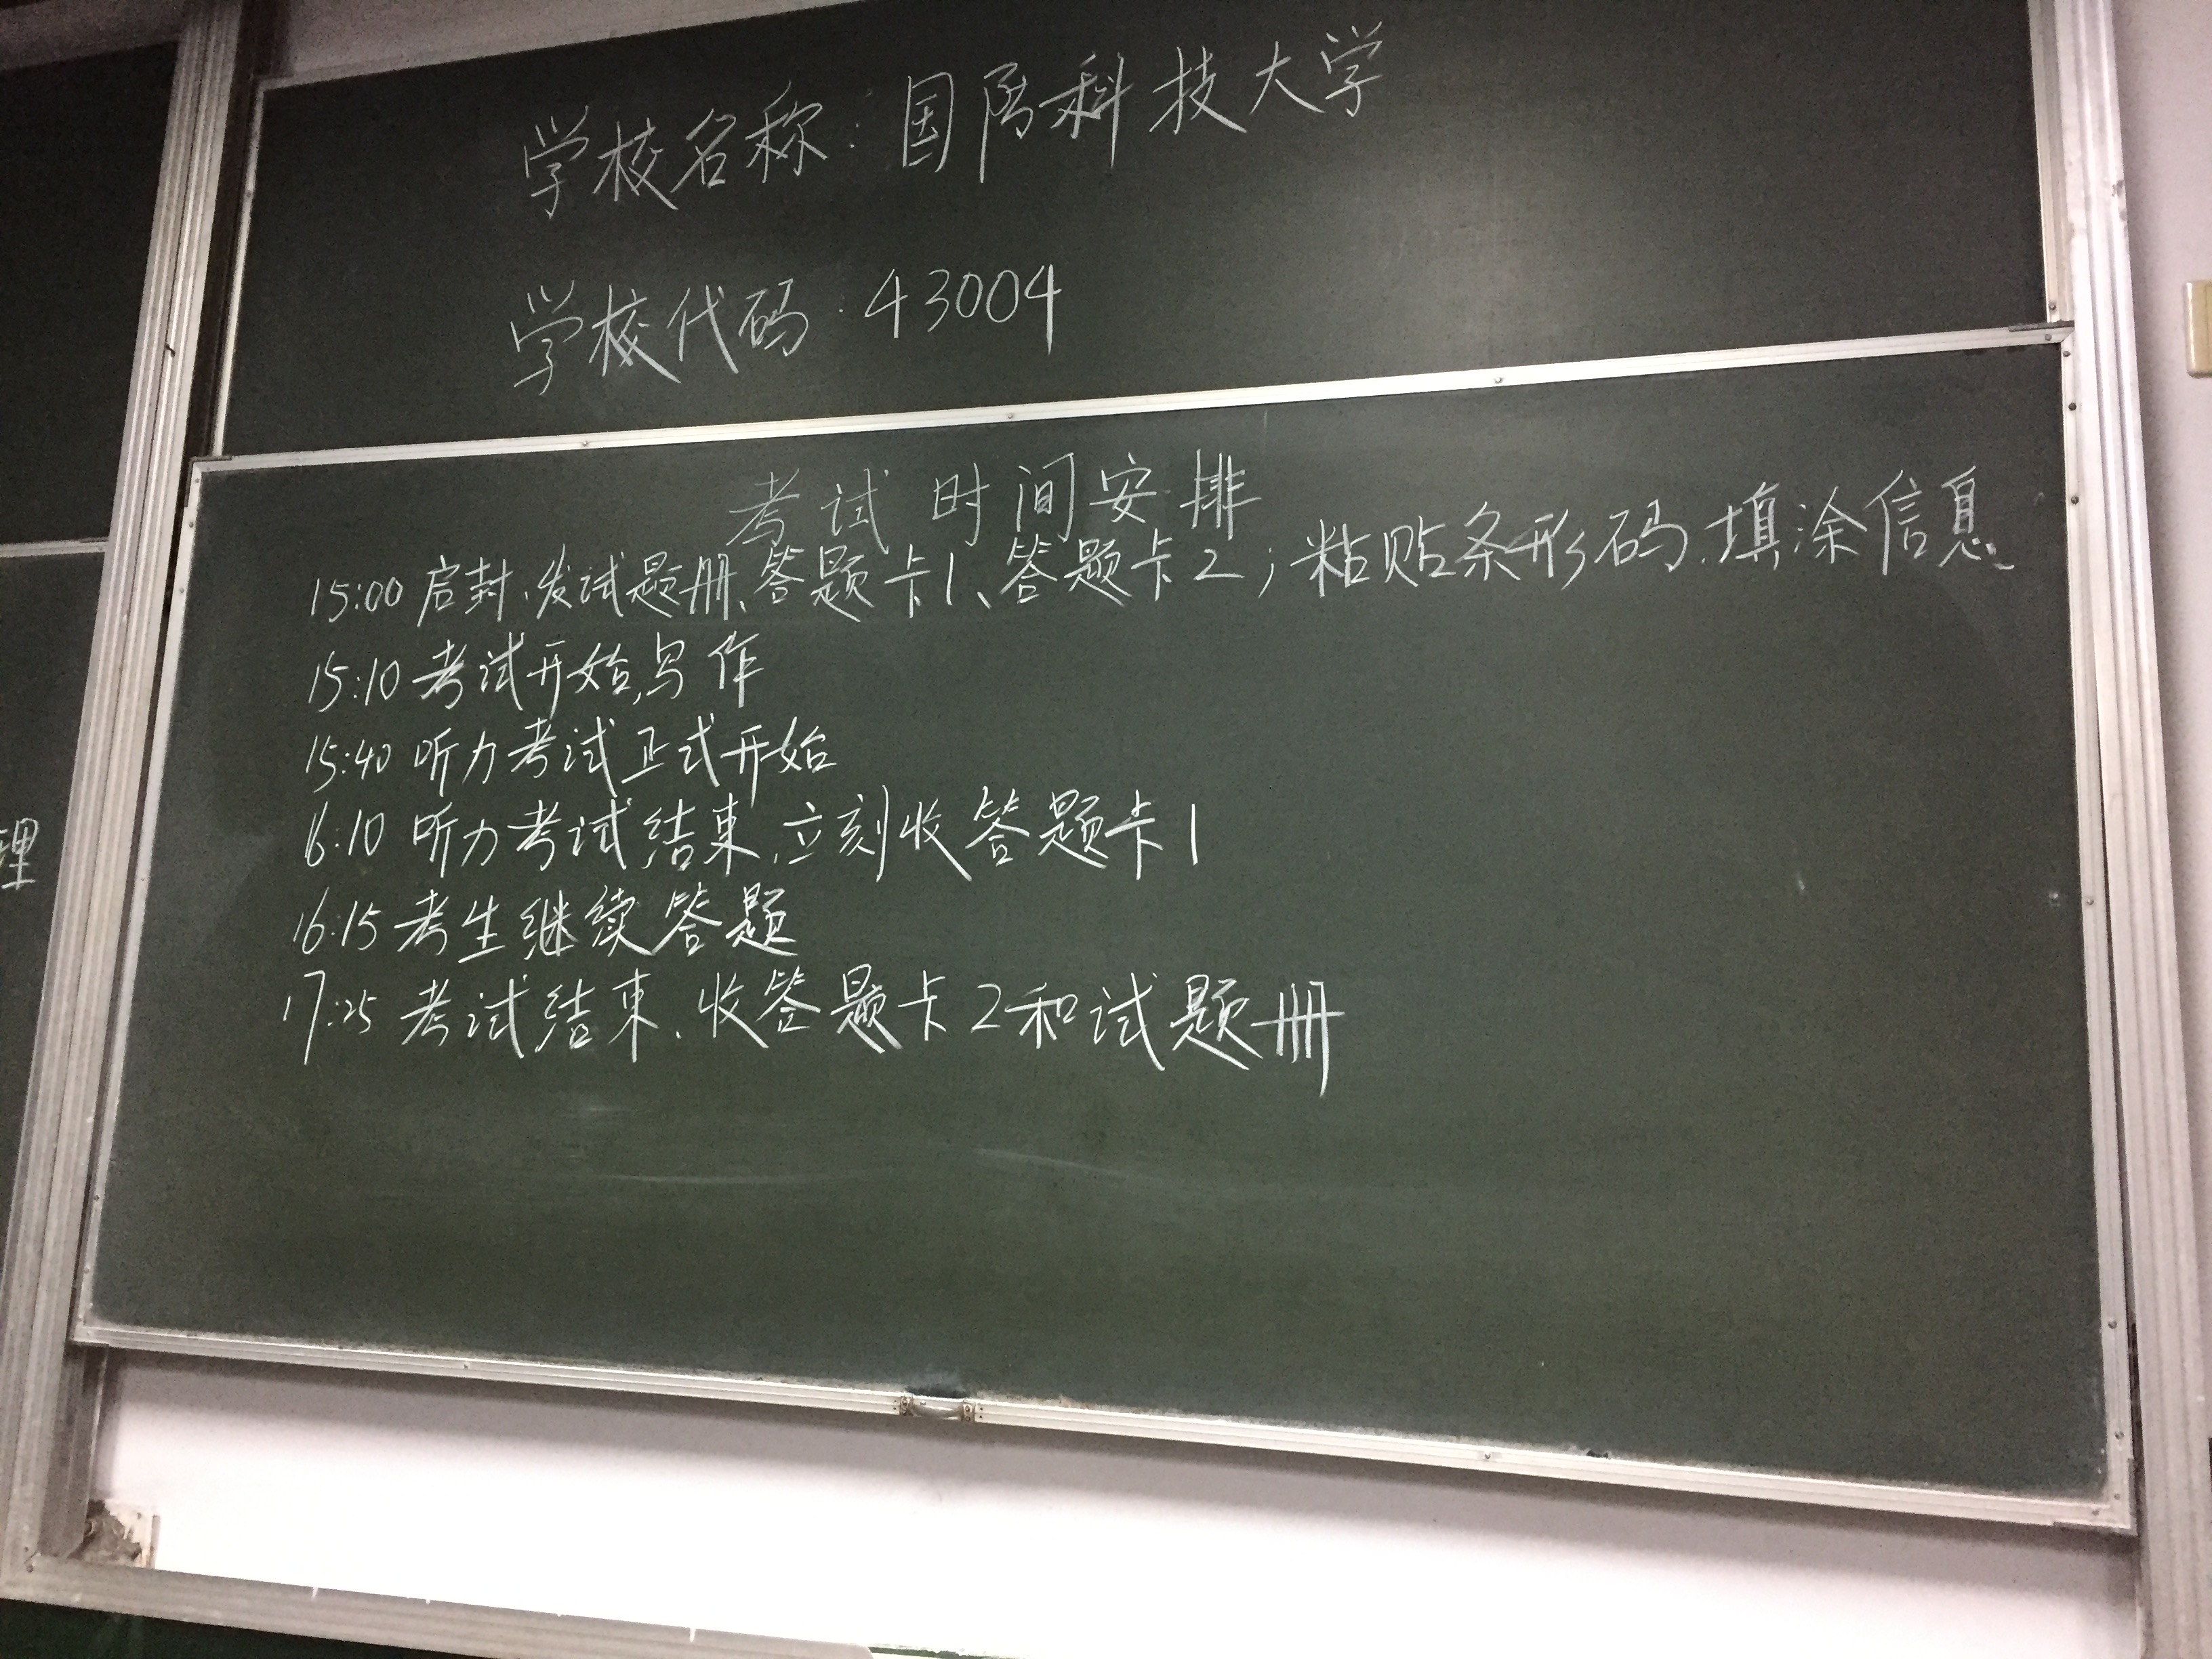 学校名称：国防科技大学
学校代码：43004
考试时间安排
15:00 启封、发试题册、答题卡1、答题卡2；粘贴条形码、填涂信息
15:10 考试开始,写作
15:40 听力考试正式开始
16:10 听力考试结束,立刻收答题卡1
16:15 考生继续答题
17:25 考试结束、收答题卡2和试题册
理